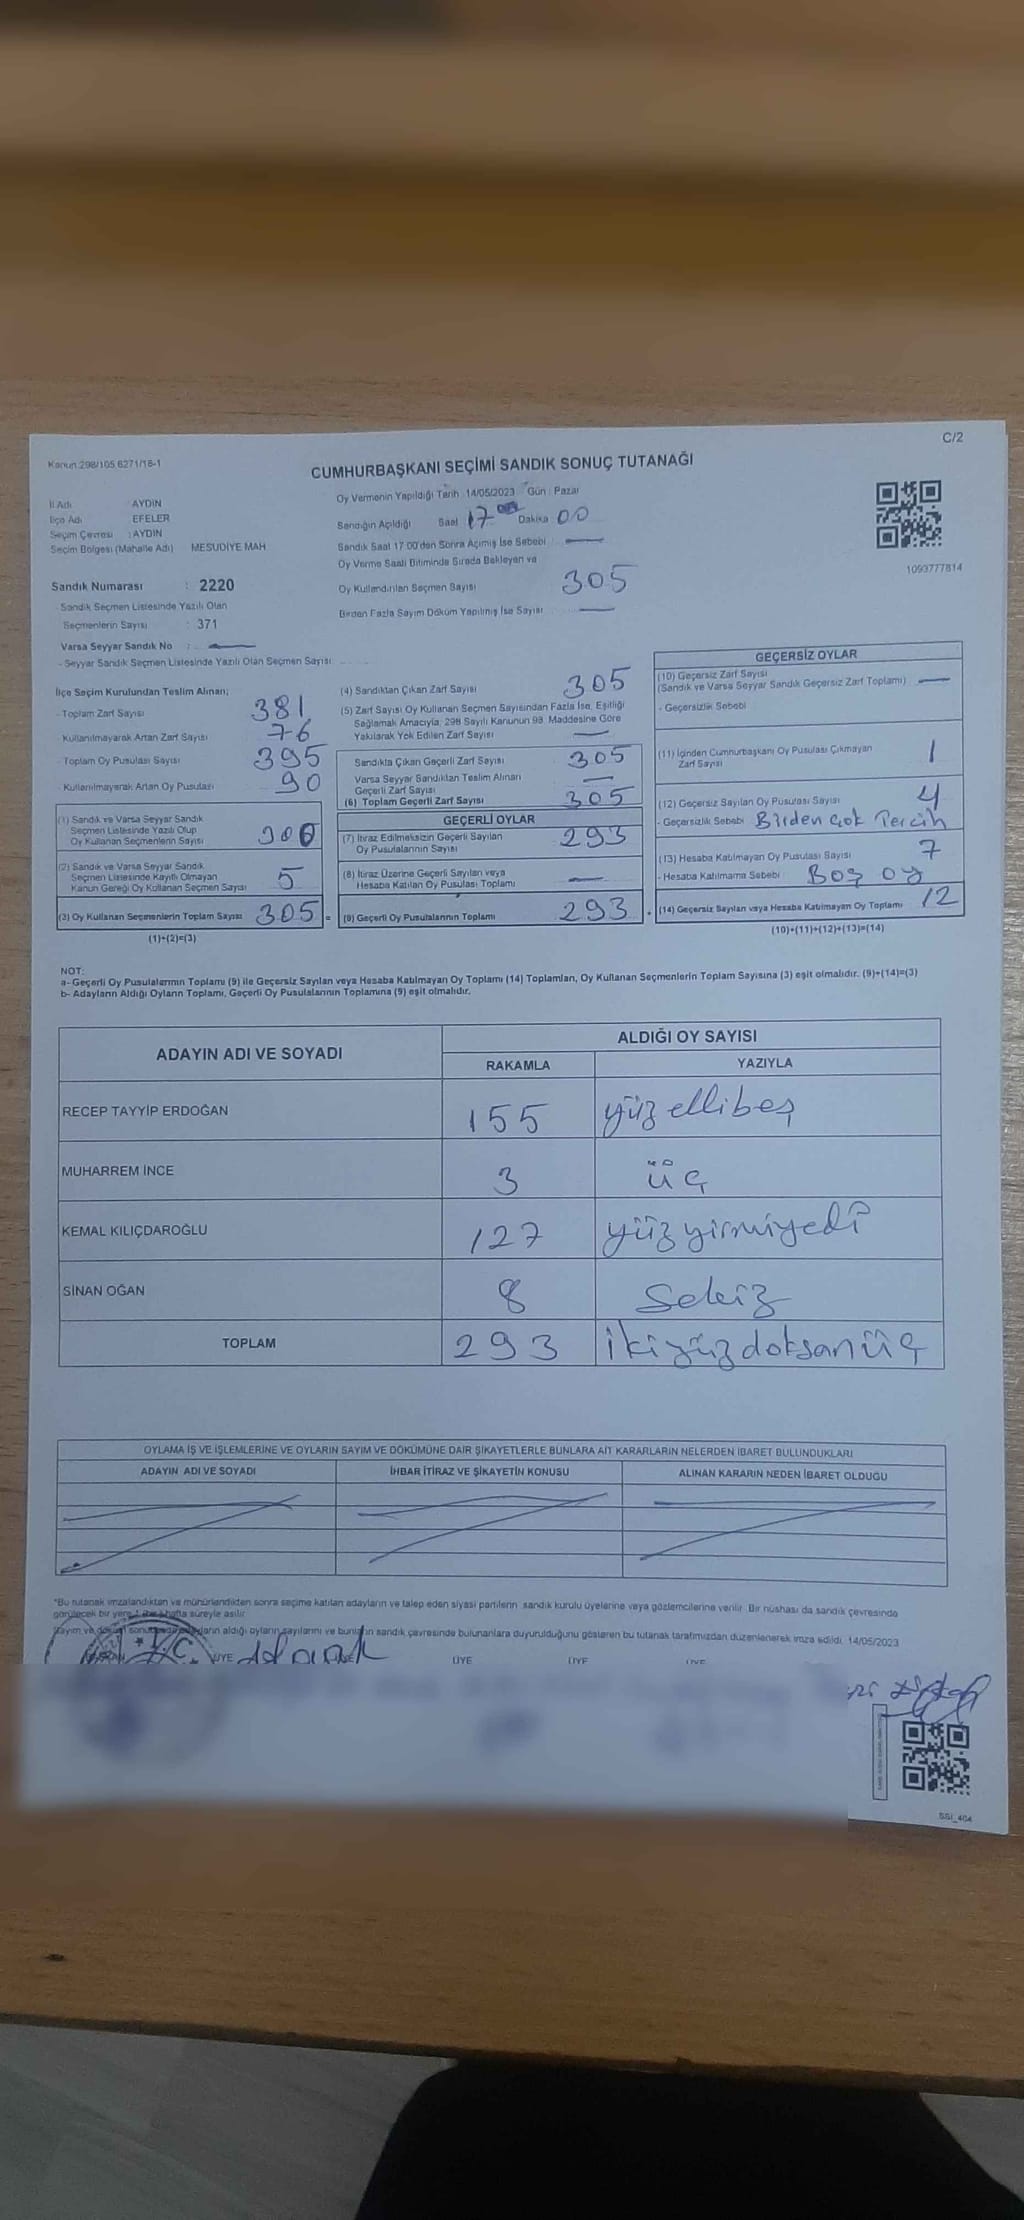 C/2
Kanun:298/105 6271/18-1
CUMHURBAŞKANI SEÇİMİ SANDIK SONUÇ TUTANAĞI
İl Adı : AYDIN
İlçe Adı : EFELER
Seçim Çevresi : AYDIN
Seçim Bölgesi (Mahalle Adı) MESUDİYE MAH
Oy Vermenin Yapıldığı Tarih :14/05/2023 Gün : Pazar
Sandığın Açıldığı Saat 17 Dakika 00
Sandık Saat 17 00'den Sonra Açımış İse Sebebi
Oy Verme Saati Bitiminde Sırada Bekleyen ve
Oy Kullandırılan Seçmen Sayısı 305
Birden Fazla Sayım Döküm Yapılmış İse Sayısı
1093777814
Sandık Numarası : 2220
- Sandık Seçmen Listesinde Yazılı Olan
Seçmenlerin Sayısı : 371
Varsa Seyyar Sandık No :
- Seyyar Sandık Seçmen Listesinde Yazılı Olan Seçmen Sayısı
İlçe Seçim Kurulundan Teslim Alınan;
- Toplam Zarf Sayısı 381
- Kullanılmayarak Artan Zarf Sayısı 76
- Toplam Oy Pusulası Sayısı 395
- Kullanılmayarak Artan Oy Pusulası 90
(1) Sandık ve Varsa Seyyar Sandık
Seçmen Listesinde Yazılı Olup
Oy Kullanan Seçmenlerin Sayısı 300
(2) Sandık ve Varsa Seyyar Sandık
Seçmen Listesinde Kayıtlı Olmayan
Kanun Gereği Oy Kullanan Seçmen Sayısı 5
(3) Oy Kullanan Seçmenlerin Toplam Sayısı 305 =
(1)+(2)=(3)
(4) Sandıktan Çıkan Zarf Sayısı 305
(5) Zarf Sayısı Oy Kullanan Seçmen Sayısından Fazla İse, Eşitliği
Sağlamak Amacıyla, 298 Sayılı Kanunun 98. Maddesine Göre
Yakılarak Yok Edilen Zarf Sayısı
Sandıkta Çıkan Geçerli Zarf Sayısı 305
Varsa Seyyar Sandıktan Teslim Alınan
Geçerli Zarf Sayısı
(6) Toplam Geçerli Zarf Sayısı 305
GEÇERLİ OYLAR
(7) İtiraz Edilmeksizin Geçerli Sayılan
Oy Pusulalarının Sayısı 293
(8) İtiraz Üzerine Geçerli Sayılan veya
Hesaba Katılan Oy Pusulası Toplamı
(9) Geçerli Oy Pusulalarının Toplamı 293
GEÇERSİZ OYLAR
(10) Geçersiz Zarf Sayısı
(Sandık ve Varsa Seyyar Sandık Geçersiz Zarf Toplamı)
- Geçersizlik Sebebi
(11) İçinden Cumhurbaşkanı Oy Pusulası Çıkmayan
Zarf Sayısı 1
(12) Geçersiz Sayılan Oy Pusulası Sayısı 4
- Geçersizlik Sebebi Birden çok Tercih
(13) Hesaba Katılmayan Oy Pusulası Sayısı 7
- Hesaba Katılmama Sebebi : Boş oy
(14) Geçersiz Sayılan veya Hesaba Katılmayan Oy Toplamı 12
(10)+(11)+(12)+(13)=(14)
NOT:
a- Geçerli Oy Pusulalarının Toplamı (9) ile Geçersiz Sayılan veya Hesaba Katılmayan Oy Toplamı (14) Toplamları, Oy Kullanan Seçmenlerin Toplam Sayısına (3) eşit olmalıdır. (9)+(14)=(3)
b- Adayların Aldığı Oyların Toplamı, Geçerli Oy Pusulalarının Toplamına (9) eşit olmalıdır.
ADAYIN ADI VE SOYADI
ALDIĞI OY SAYISI
RAKAMLA YAZIYLA
RECEP TAYYİP ERDOĞAN 155 yüz ellibeş
MUHARREM İNCE 3 üç
KEMAL KILIÇDAROĞLU 127 yüz yirmiyedi
SİNAN OĞAN 8 Sekiz
TOPLAM 293 ikiyüz doksan üç
OYLAMA İŞ VE İŞLEMLERİNE VE OYLARIN SAYIM VE DÖKÜMÜNE DAİR ŞİKAYETLERLE BUNLARA AİT KARARLARIN NELERDEN İBARET BULUNDUKLARI
ADAYIN ADI VE SOYADI İHBAR İTİRAZ VE ŞİKAYETİN KONUSU ALINAN KARARIN NEDEN İBARET OLDUĞU
*Bu tutanak imzalandıktan ve mühürlendikten sonra seçime katılan adayların ve talep eden siyasi partilerin sandık kurulu üyelerine veya gözlemcilerine verilir. Bir nüshası da sandık çevresinde
görülecek bir yere 1 (bir) hafta süreyle asılır.
Sayım ve döküm sonucu adayların aldığı oyların sayılarını ve bunların sandık çevresinde bulunanlara duyurulduğunu gösteren bu tutanak tarafımızdan düzenlenerek imza edildi. 14/05/2023
T.C. ÜYE ÜYE ÜYE ÜYE
SSI_464